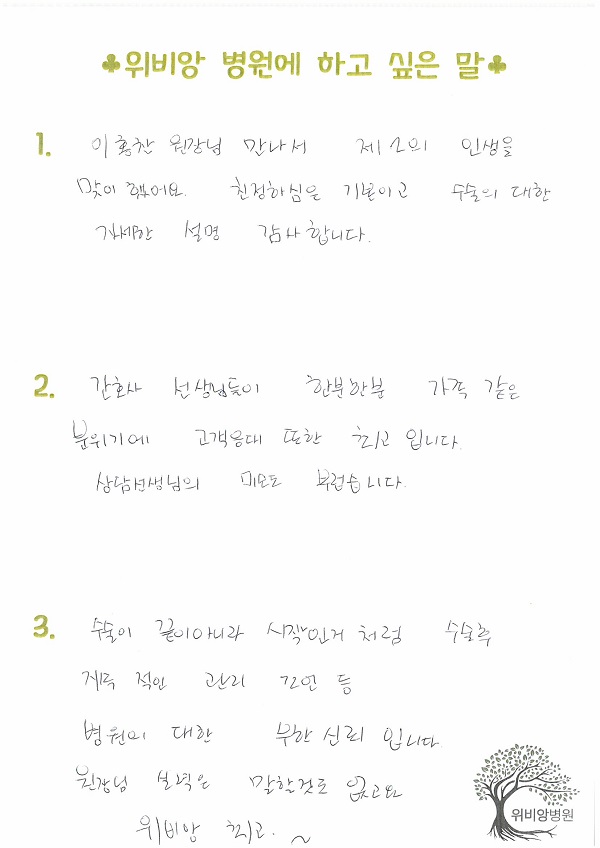 ♣위비앙 병원에 하고 싶은 말♣
1. 이홍찬 원장님 만나서 제2의 인생을
맞이 했어요. 친정하심은 기본이고 수술의 대한
자세한 설명 감사합니다.
2. 간호사 선생님들이 한분한분 가족 같은
분위기에 고객응대 또한 최고 입니다.
상담선생님의 미모도 부럽습니다.
3. 수술이 끝이아니라 시작인거 처럼 수술후
적인 관리 조언 등
병원의 대한 무한신뢰 입니다
원장님 실력은 말할것도 없고요
위비앙 최고. ~
위비앙병원